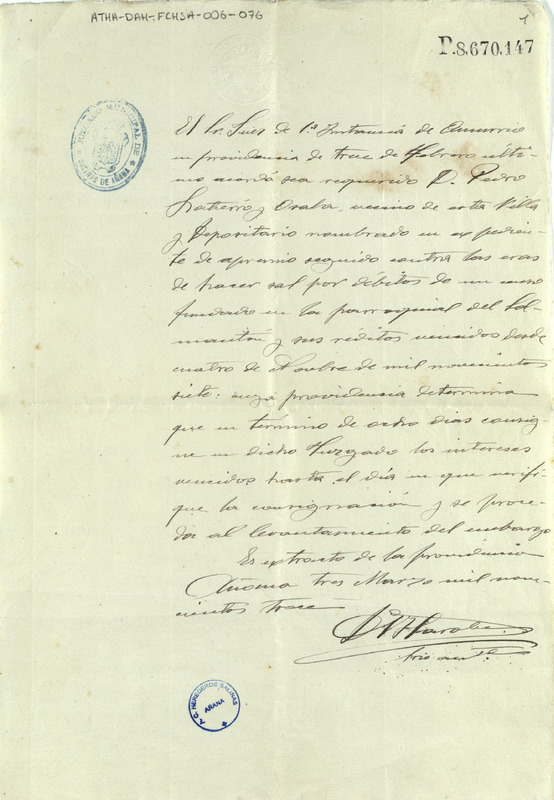 ATHA-DAH-FCHSA-006-076
1
P.8,670,147
JUZGADO MUNICIPAL DE
SALINAS DE AÑANA
El Sr. Juez de 1ª Instancia de Amurrio
en providencia de trece de Febrero últi-
mo acordó sea requerido D. Pedro
y Ozalla, vecino de esta Villa
y Depositario nombrado en expedien-
te de apremio seguido contra las eras
de hacer sal por débitos de un censo
fundado en la parroquial del Sal-
mantón y sus réditos vencidos desde
cuatro de Nobre de mil novecientos
siete: cuya providencia determina
que en término de ocho dias consig-
ne en dicho Juzgado los intereses
vencidos hasta el día en que verifi-
que la consignación y se proce-
da al levantamiento del embargo
Es extracto de la providencia
Añana tres Marzo mil nove-
cientos trece
HEREDEROS SALINAS
AÑANA